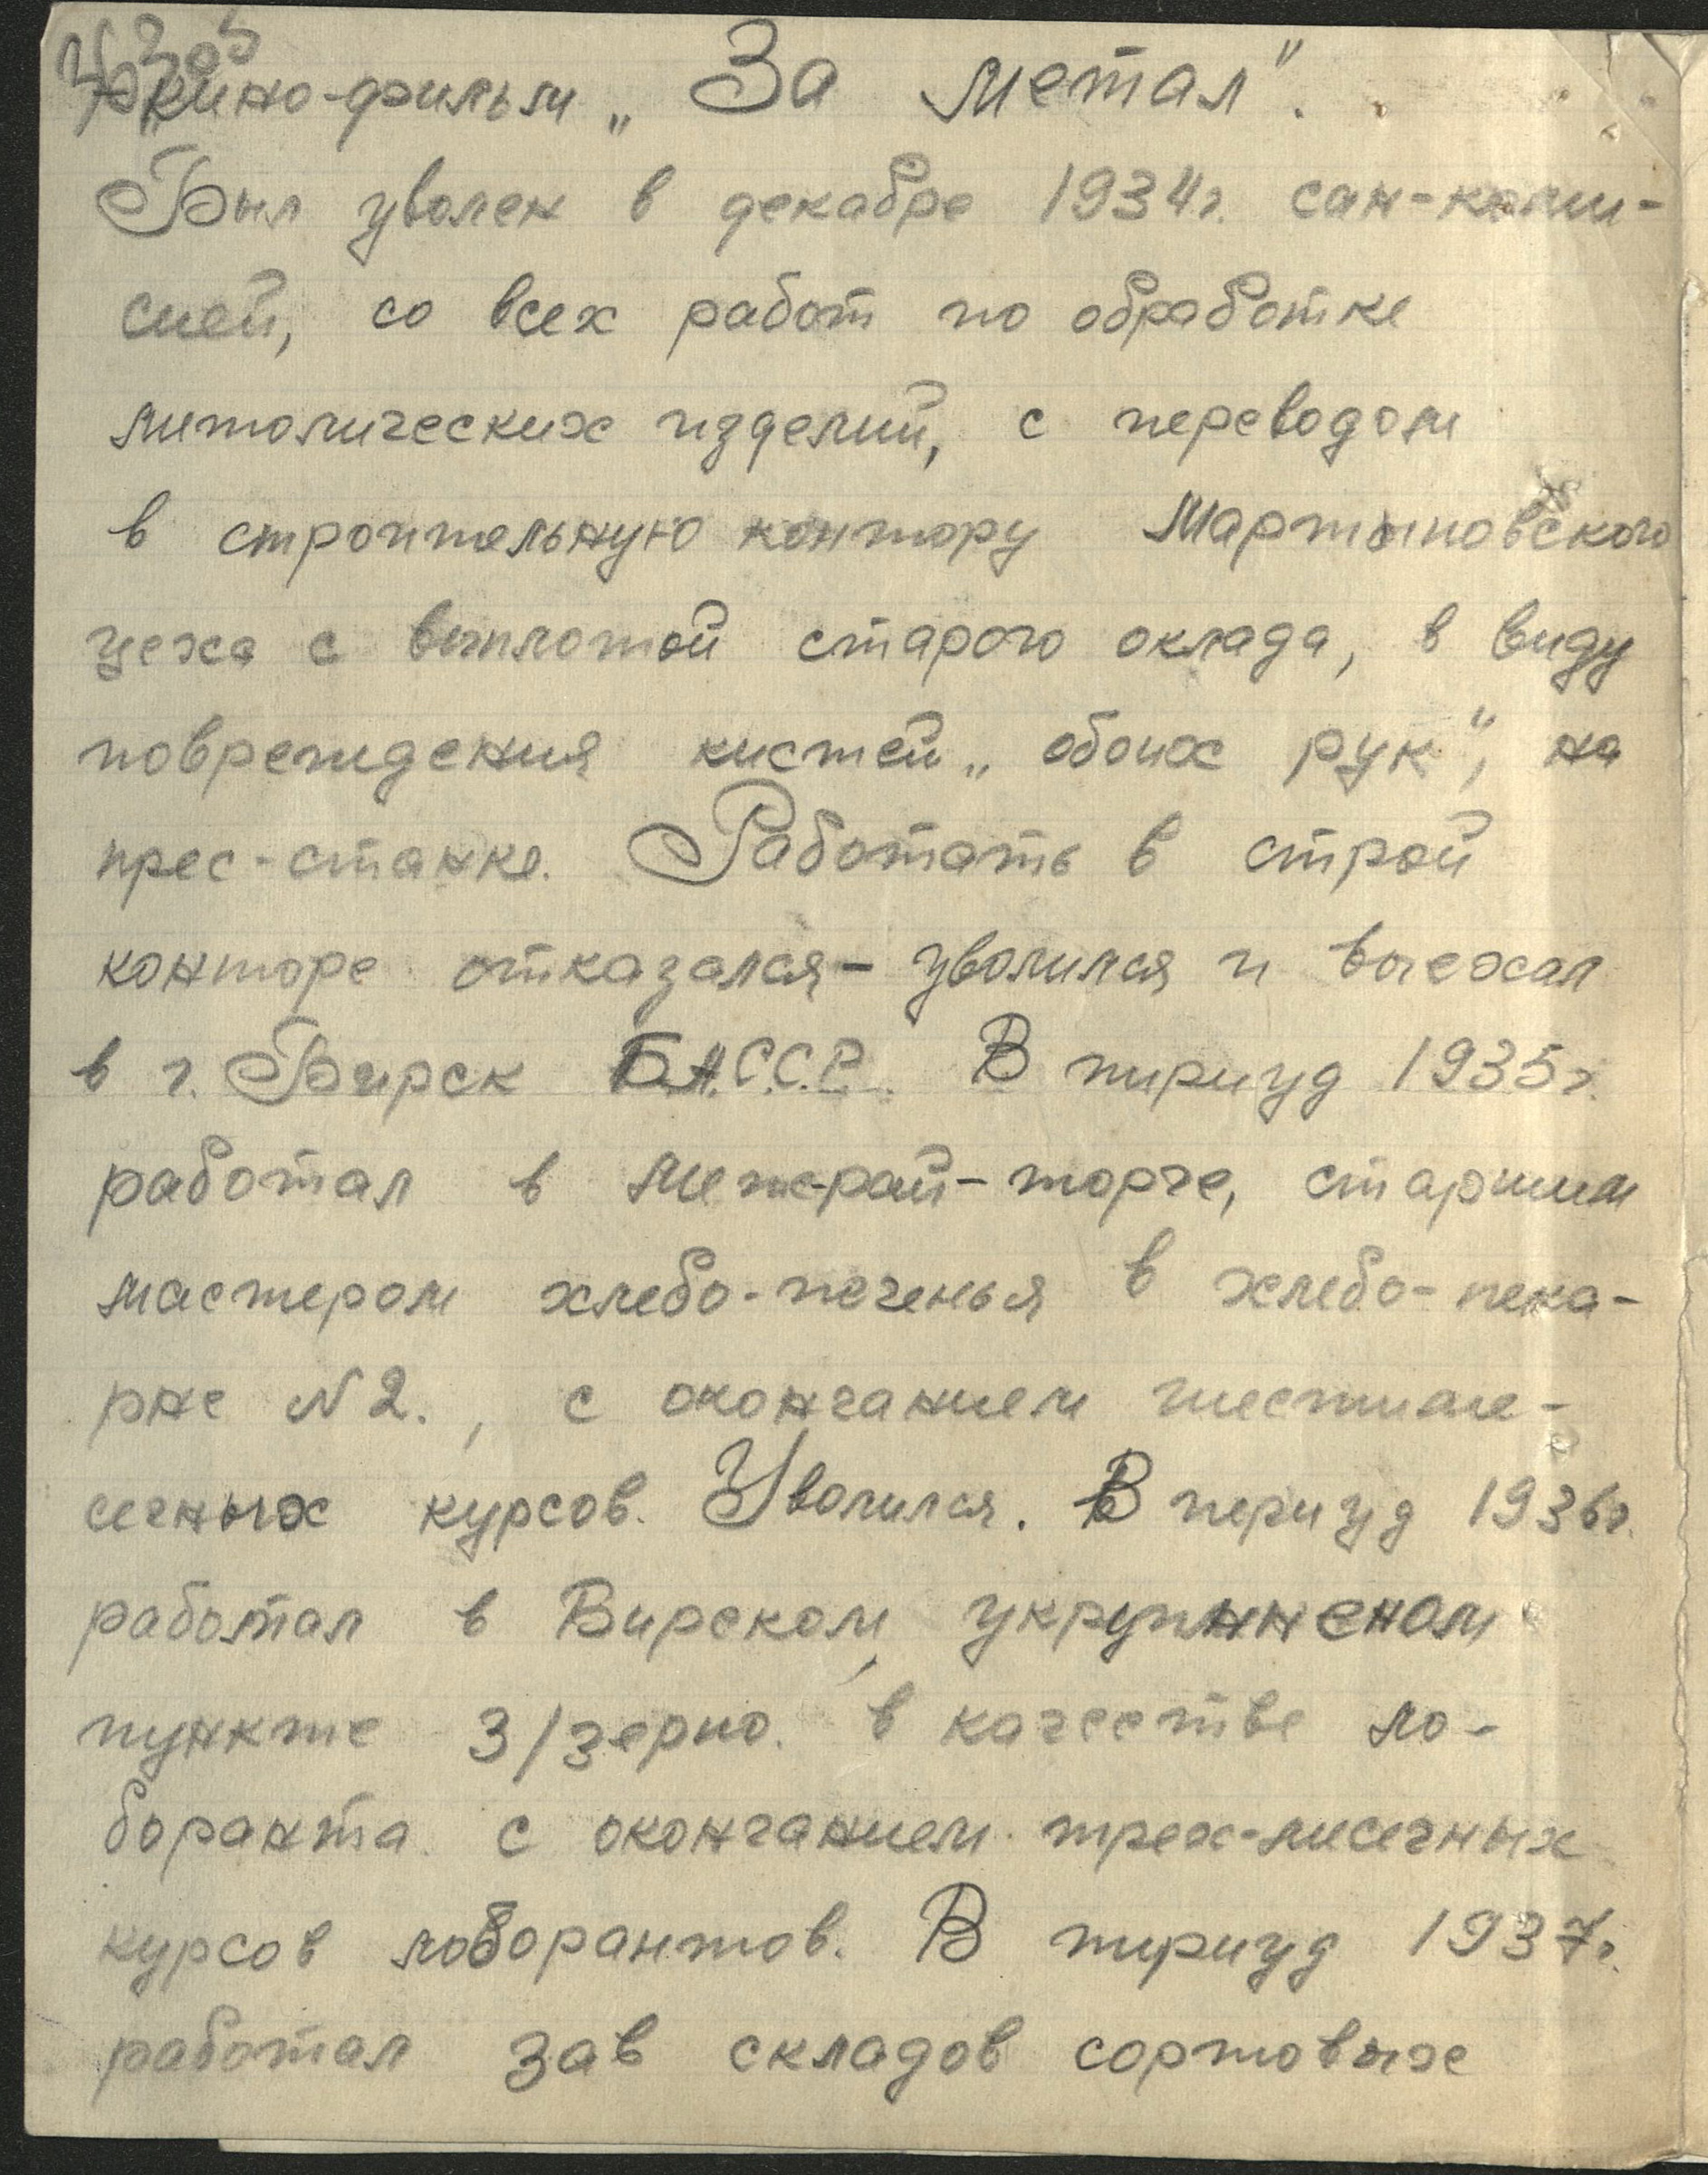 кино-фильм „За метал".
Был уволен в декабре 1934г. сан-коми-
сией, со всех работ по обработке
митолических изделий, с переводом
в строительную контору Мартыновского
цеха с выплотой старого оклада, в виду
повреждения кистей „обоих рук", на
прес-станке. Работать в строй
конторе отказался - уволился и выехал
в г. Бирск Б.А.С.С.Р. В пириуд 1935г.
работал в меж-рай-торге, старшим
мастером хлебо-печенья в хлебо-пека-
рне N2., с окончанием шестиме-
сечных курсов. Уволился. В периуд 1936г.
работал в Бирском, укрупнненом
пункте З/зерно. в качестве ло-
боранта с окончанием трех-месечных
курсов лоборантов. В пириуд 1937г.
работал зав складов сортовых